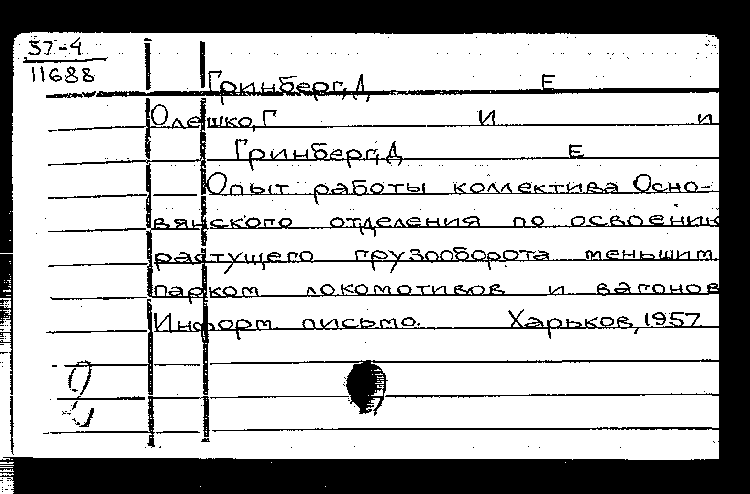 57-4
11688
Гринберг, Д Е
Олешко, Г И и
Гринберг, Д Е
Опыт работы коллектива Осно-
вянского отделения по освоению
растущего грузооборота меньшим
парком локомотивов и вагонов
Информ. письмо. Харьков, 1957
2